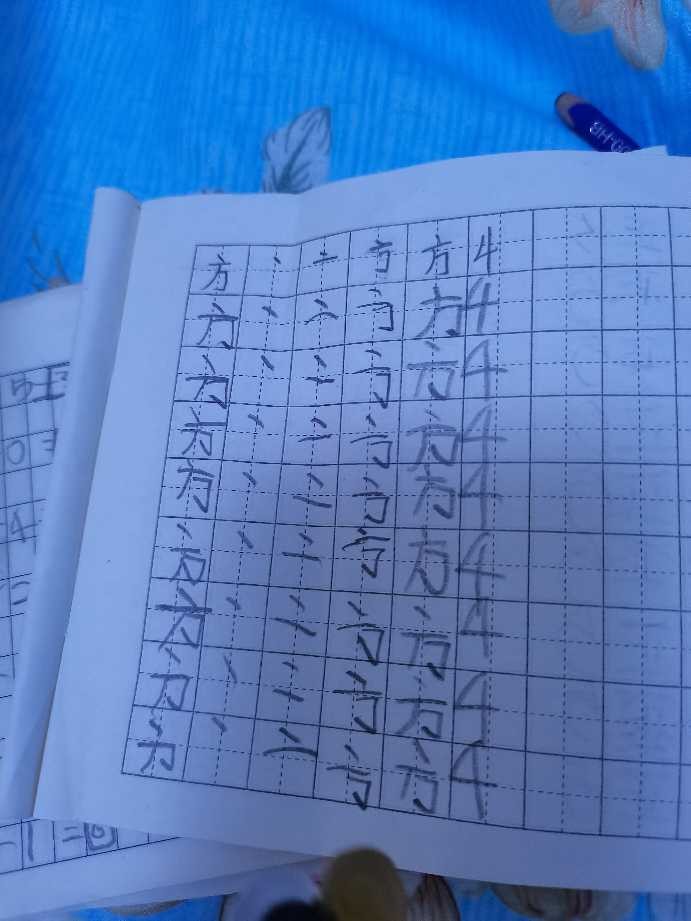 方 丶 亠 方 4
方 丶 亠 方 4
方 丶 亠 方 4
方 丶 亠 方 4
方 丶 亠 方 4
方 丶 亠 方 4
方 丶 亠 方 4
方 丶 亠 方 4
方 丶 亠 方 4
5
0
4
-1=0
HB